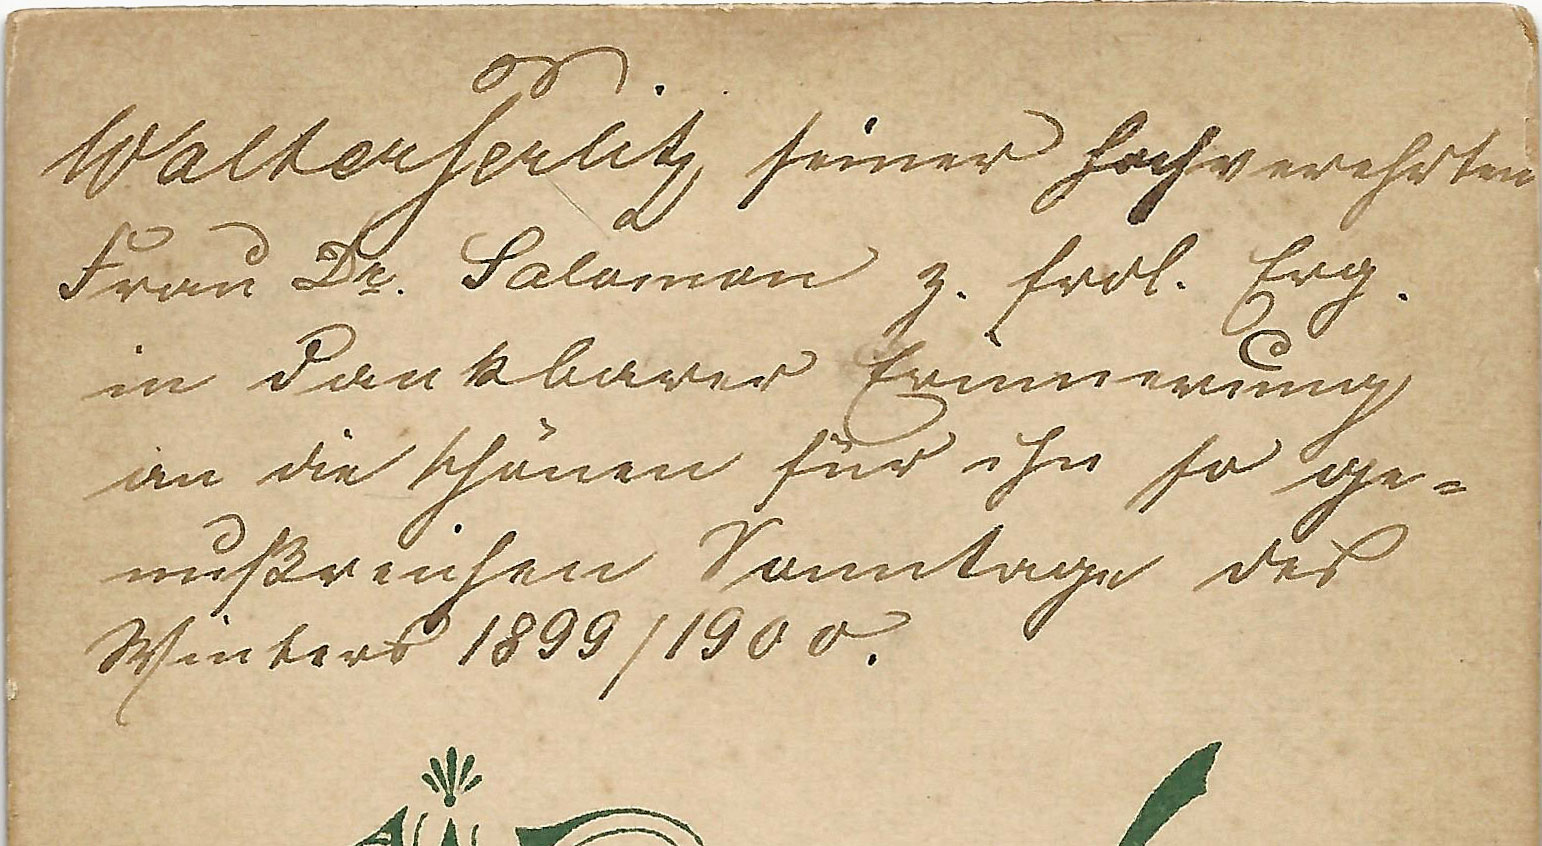 Walter Herlitz seiner hochverehrten
Frau Dr. Salomon z. frdl. Erg.
in dankbarer Erinnerung
an die schönen für ihn so ge-
nußreichen Sonntage des
Winters 1899/1900.